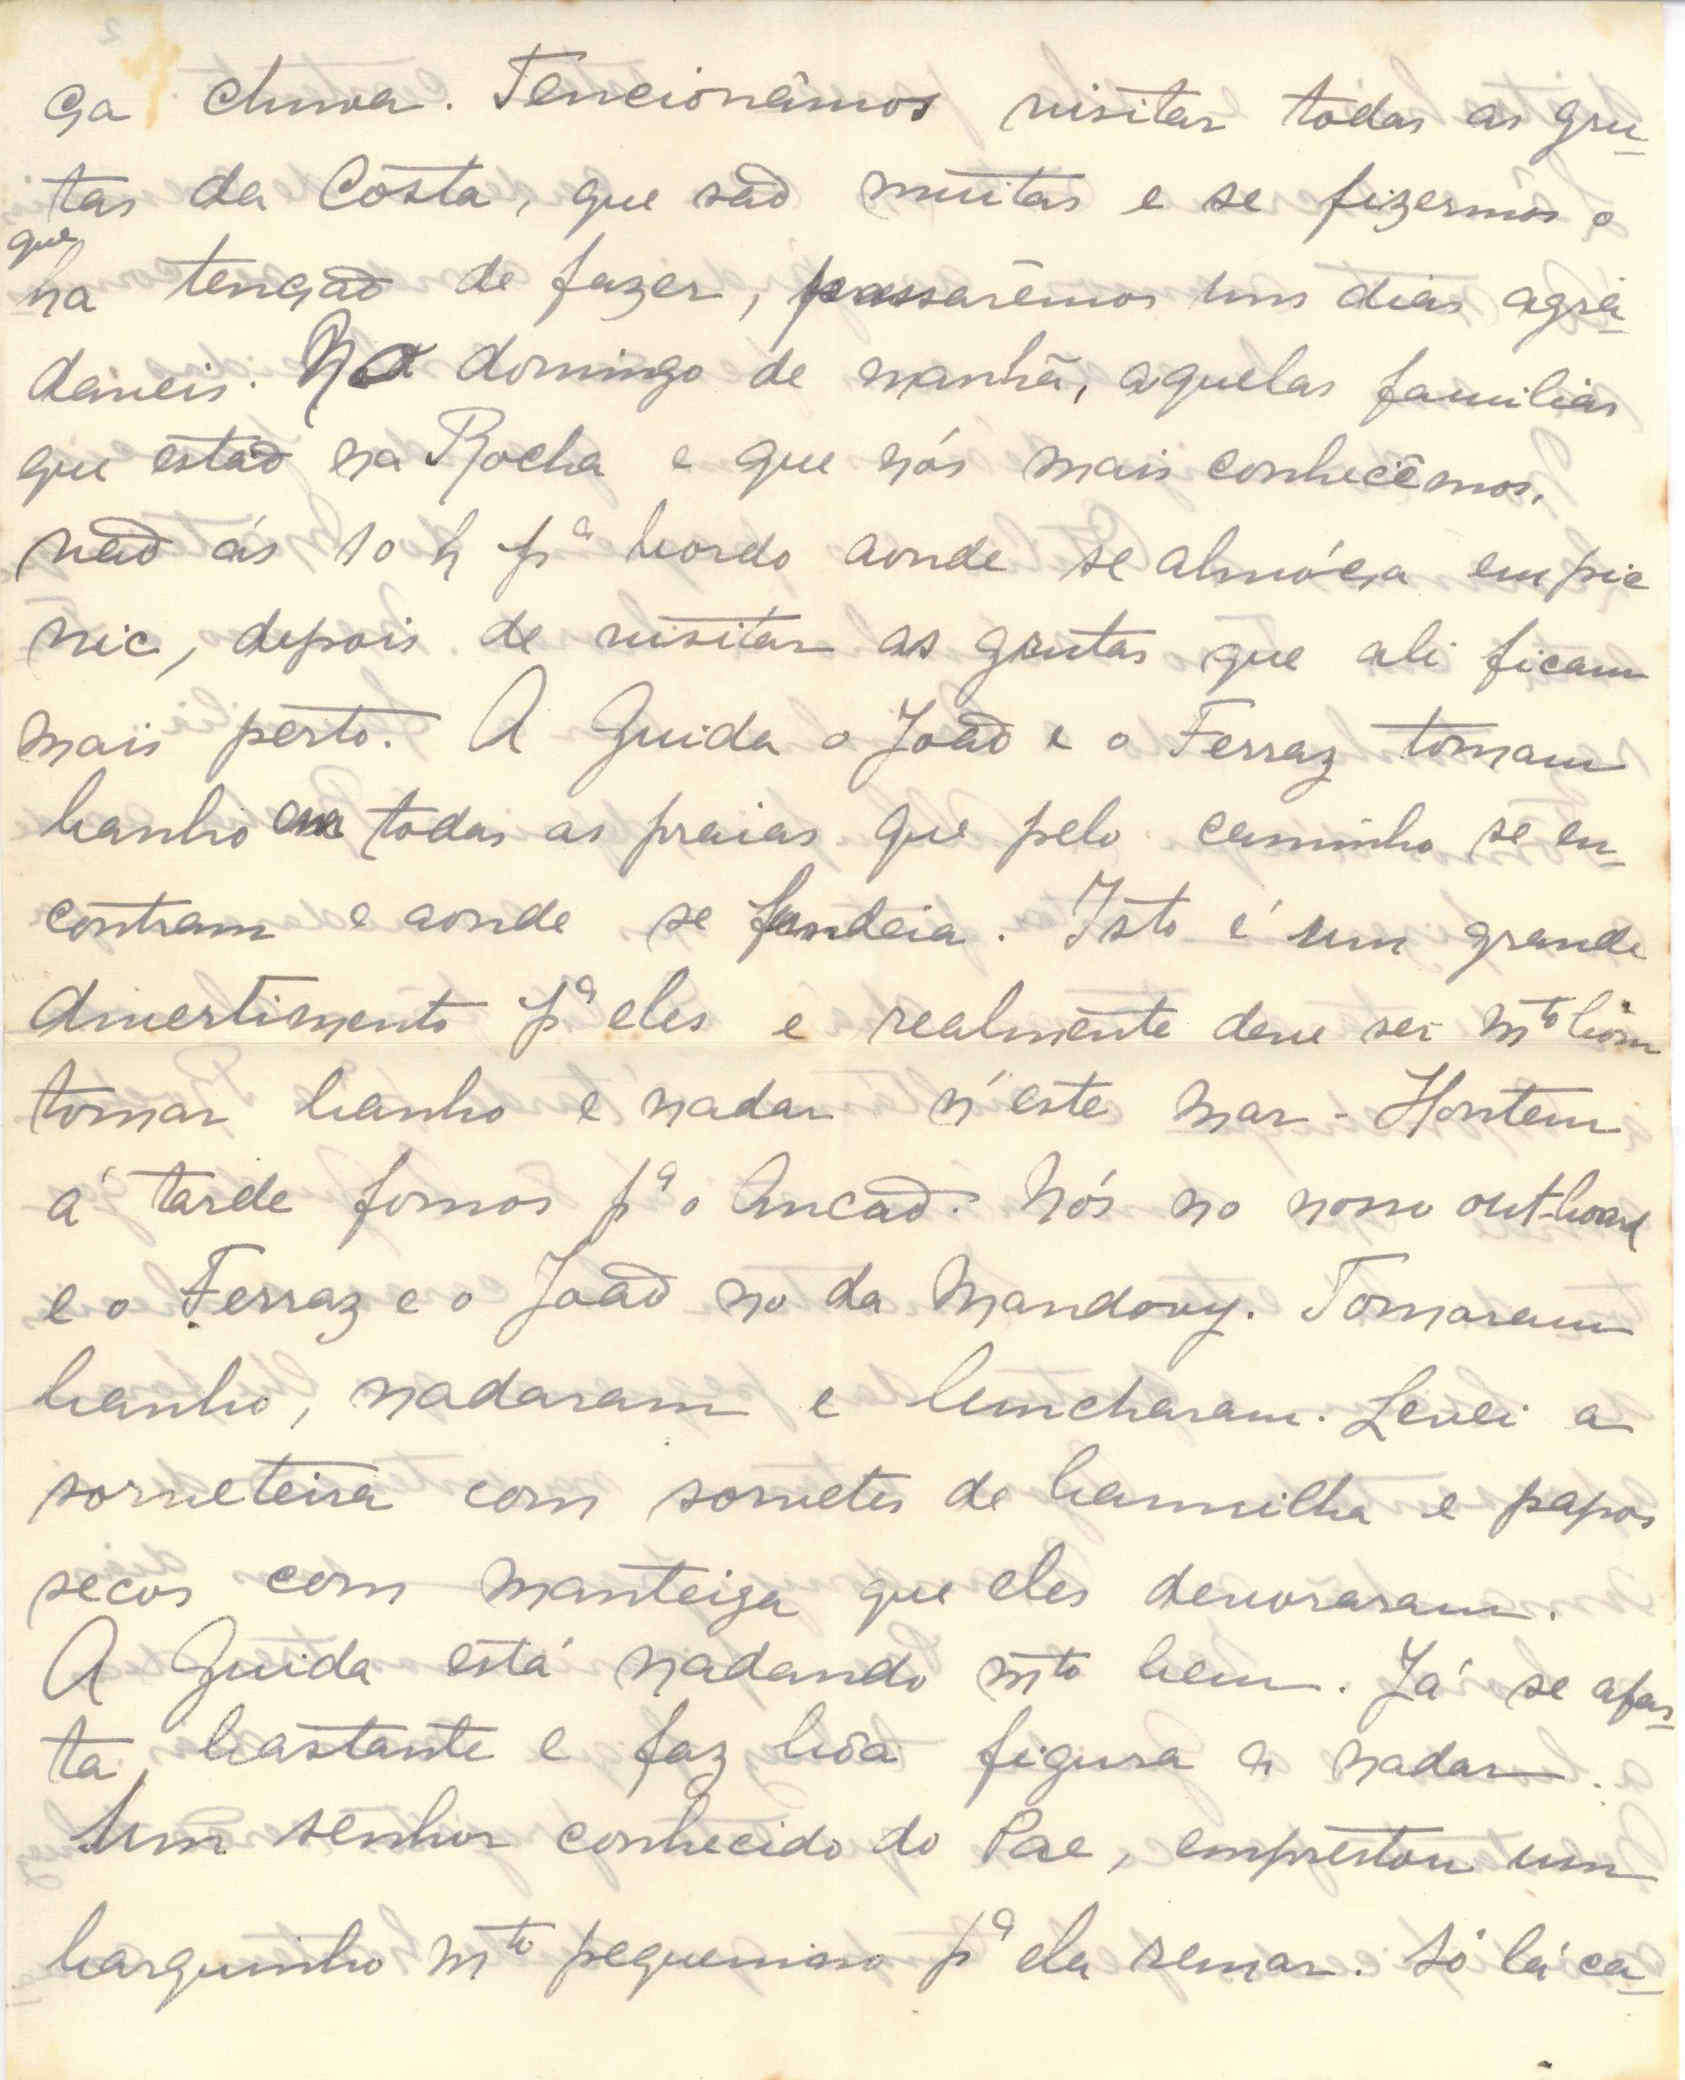 ça chuva. Tencionâmos visitar todas as gru-
tas da Costa, que são muitas e se fizermos o
que
ha tenção de fazer, passarêmos uns dias agra-
daveis. No domingo de manhã, aquelas familias
que estão na Rocha e que nós mais conhecêmos,
vão ás 10 h pª bordo aonde se almóça em pic
nic, depois de visitar as grutas que ali ficam
mais perto. A Guida o João e o Ferraz tomam
banho em todas as praias que pelo caminho se en-
contram e aonde se fundeia. Isto é um grande
divertimento pª eles e realmente deve ser mto bom
tomar banho e nadar n'este mar - Hontem
á tarde fomos pª o Ancão. Nós no nosso out-board
e o Ferraz e o João no da Mandovy. Tomaram
banho, nadaram e luncharam. Levei a
sorveteira com sorvetes de baunilha e papos
secos com manteiga que eles devoraram.
A Guida está nadando mto bem. Já se afas-
ta bastante e faz bôa figura a nadar.
Um senhor conhecido do Pae, emprestou um
barquinho mto pequenino pª ela remar. Só lá ca-